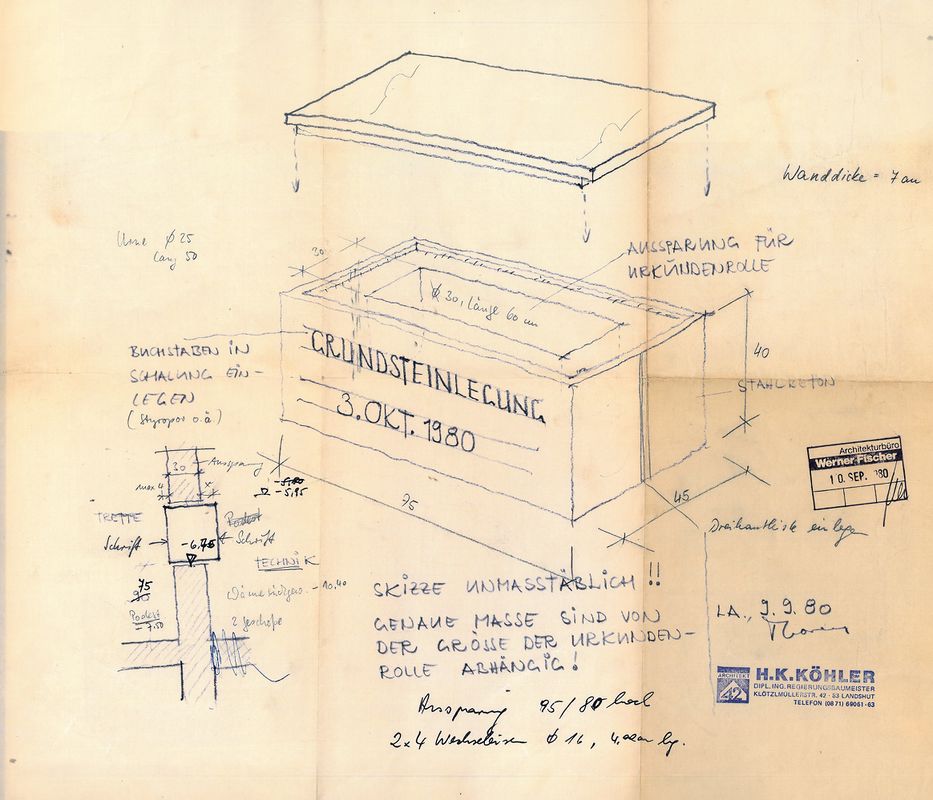 Wanddicke = 7 cm
Urne Ø 25
lang 50
AUSSPARUNG FÜR
URKUNDENROLLE
30
Ø 30, Länge 60 cm
BUCHSTABEN IN
SCHALUNG EIN-
LEGEN
(Styropor o.ä)
GRUNDSTEINLEGUNG
3. OKT. 1980
40
STAHLBETON
95
45
Architekturbüro
Werner Fischer
10. SEP. 80
30
Aussparung
max 4
- 5,95
TREPPE
Podest
Schrift
- 6,75
Schrift
TECHNIK
75
90
Podest
- 7,50
- 10.40
2 geschosse
Dreikantliste einlegen
SKIZZE UNMASSTÄBLICH !!
GENAUE MASSE SIND VON
DER GRÖSSE DER URKUNDEN-
ROLLE ABHÄNGIG!
LA., 9.9.80
ARCHITEKT
42
H.K.KÖHLER
DIPL.ING.REGIERUNGSBAUMEISTER
KLÖTZLMÜLLERSTR. 42 · 83 LANDSHUT
TELEFON (0871) 69061-63
Aussparung 95/80 hoch
2x4 Wechseleisen Ø 16, lg.